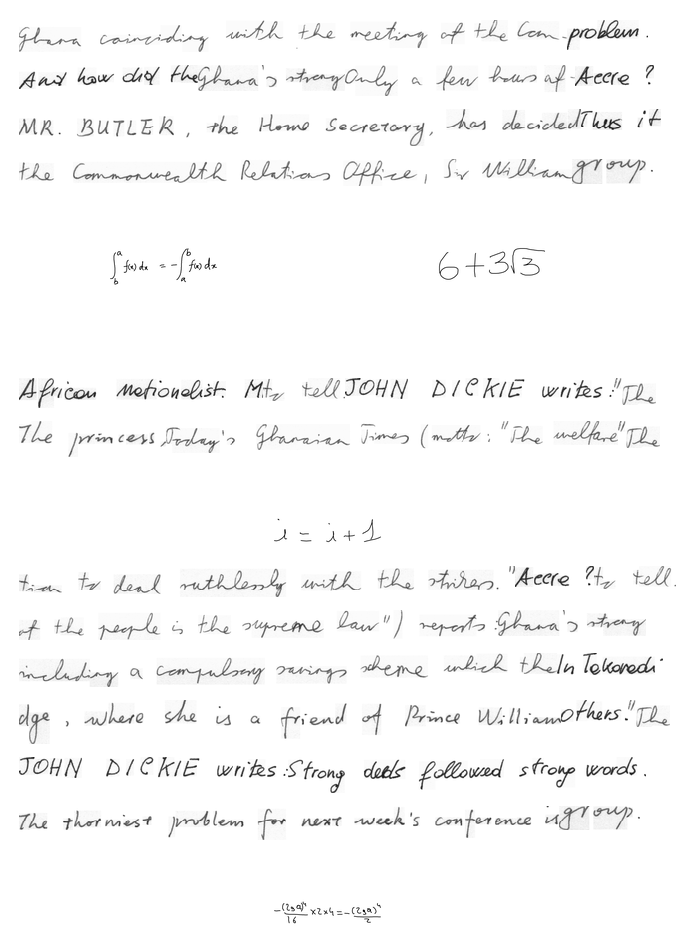 Ghana coinciding with the meeting of the Com- problem.
And how did the Ghana's strong Only a few hours af- Accra ?
MR. BUTLER, the Home Secretary, has decided Thus it
the Commonwealth Relations Office, Sir William group.
∫_b^a f(x) dx = -∫_a^b f(x) dx
6+3√3
African Nationalist. Mr to tell. JOHN DICKIE writes: "The
The princess, Today's Ghanaian Times (motto: "The welfare "The
i = i + 1
tion to deal ruthlessly with the strikes. "Accra ? to tell.
of the people is the supreme law") reports: Ghana's strong
including a compulsory savings scheme which the In Takoradi
dge, where she is a friend of Prince William Others. "The
JOHN DICKIE writes: Strong deeds followed strong words.
The thorniest problem for next week's conference is group.
-(2ga)^4/16 x2x4 = -(2ga)^4/2